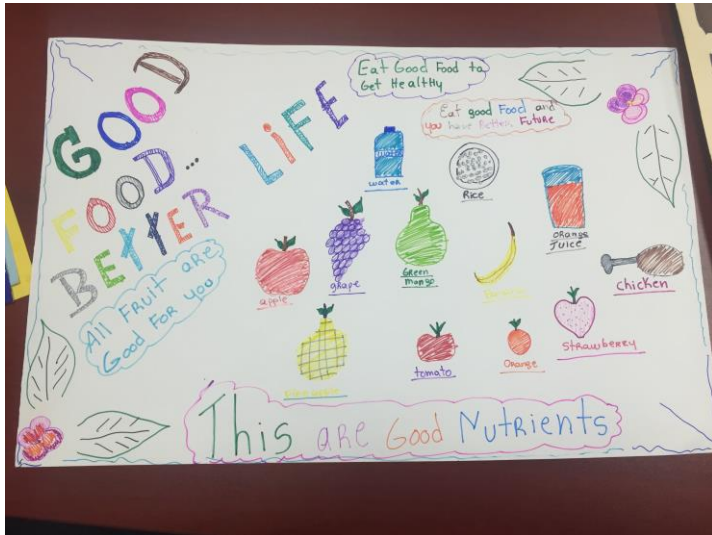 GOOD
FOOD...
BETTER LIFE
All FRuit are
Good FoR you
Eat Good Food to
Get Healthy
Eat good Food and
you have Better Future
water
Rice
ORange
Juice
apple
gRape
GReen
mango
Banana
chicken
Pineapple
tomato
Orange
StRawbeRRy
This aRe Good NutRients